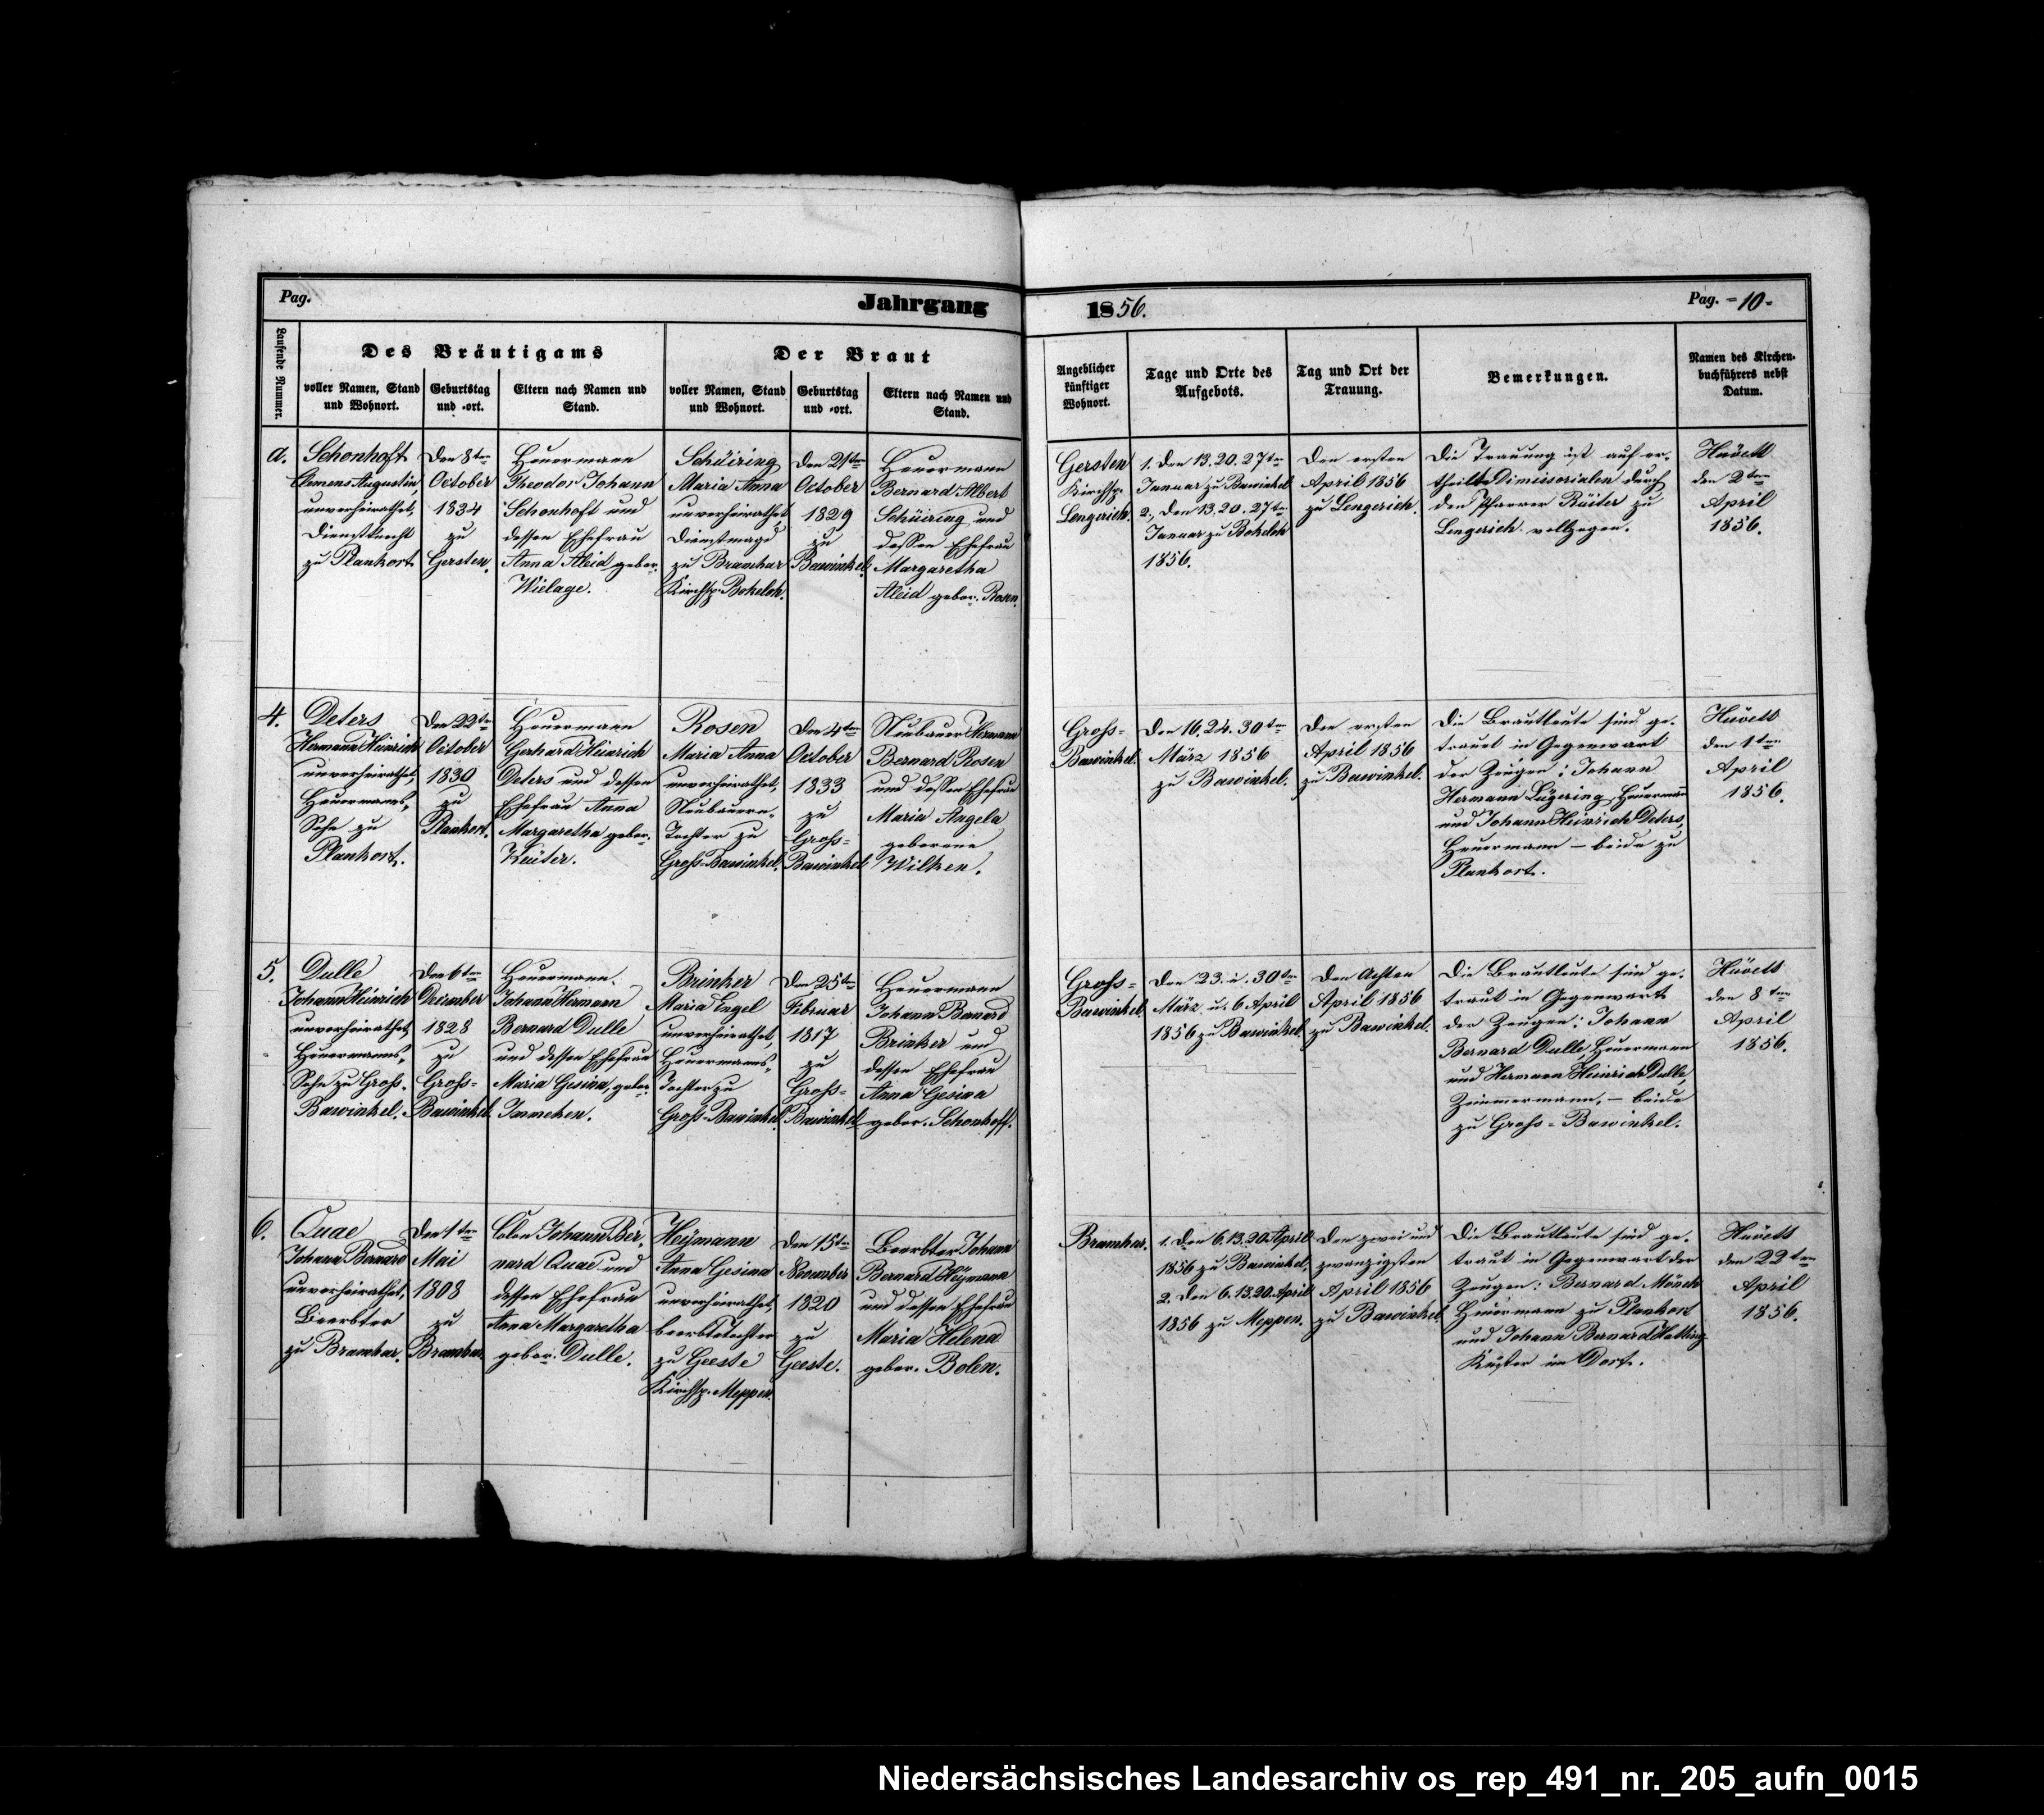 Pag.
Jahrgang
1856.
Pag. -10-
Laufende Nummer.
Des Bräutigams
Der Braut
voller Namen, Stand
und Wohnort.
Geburtstag
und -ort.
Eltern nach Namen und
Stand.
voller Namen, Stand
und Wohnort.
Geburtstag
und -ort.
Eltern nach Namen und
Stand.
Angeblicher
künftiger
Wohnort.
Tage und Orte des
Aufgebots.
Tag und Ort der
Trauung.
Bemerkungen.
Namen des Kirchen-
buchführers nebst
Datum.
a.
Schonhoft
Clemens Augustin,
unverheirathet,
Dienstknecht
zu Plankort
Den 8ten
October
1834
zu
Gersten.
Heuermann
Theodor Johann
Schonhoft und
dessen Ehefrau
Anna Aleid gebor.
Wielage.
Schüiring
Maria Anna
unverheirathet,
Dienstmagd
zu Bramhar
Kirchsp. Bokeloh.
Den 21ten
October
1829
zu
Bawinkel.
Heuermann
Bernard Albert
Schüiring und
dessen Ehefrau
Margaretha
Aleid gebor. Rosen.
Gersten
Kirchsp.
Lengerich.
1. Den 13. 20. 27ten
Januar zu Bawinkel
2., Den 13. 20. 27ten
Januar zu Bokeloh
1856.
Den ersten
April 1856
zu Lengerich.
Die Trauung ist auf er-
theilte Dimissorialen durch
den Pfarrer Rüiter zu
Lengerich vollzogen.
Hüvett
den 2ten
April
1856.
4.
Deters
Hermann Heinrich
unverheirathet,
Heuermanns-
Sohn zu
Plankort.
Den 22ten
October
1830
zu
Plankort.
Heuermann
Gerhard Heinrich
Deters und dessen
Ehefrau Anna
Margaretha gebor.
Küter.
Rosen
Maria Anna
unverheirathet,
Neubauern-
Tochter zu
Groß-Bawinkel.
Den 4ten
October
1833
zu
Groß-
Bawinkel
Neubauer Hermann
Bernard Rosen
und dessen Ehefrau
Maria Angela
geborene
Wilken.
Groß-
Bawinkel.
Den 16. 24. 30ten
März 1856
zu Bawinkel.
Den ersten
April 1856
zu Bawinkel.
Die Brautleute sind ge-
trauet in Gegenwart
der Zeugen: Johann
Hermann Lügering, Heuermann
und Johann Heinrich Deters,
Heuermann – beide zu
Plankort.
Hüvett
den 1ten
April
1856.
5.
Dulle
Johann Heinrich
unverheirathet,
Heuermanns-
Sohn zu Groß-
Bawinkel.
Den 6ten
December
1828
zu
Groß-
Bawinkel.
Heuermann
Johann Hermann
Bernard Dulle
und dessen Ehefrau
Maria Gesina, gebor.
Janneken.
Brinker
Maria Engel
unverheirathet,
Heuermanns-
Tochter zu
Groß-Bawinkel.
Den 25ten
Februar
1817
zu
Groß-
Bawinkel
Heuermann
Johann Bernard
Brinker und
dessen Ehefrau
Anna Gesina
gebor. Schonhoff.
Groß-
Bawinkel
Den 23. u. 30ten
März u. 6 April
1856 zu Bawinkel.
Den Achten
April 1856
zu Bawinkel.
Die Brautleute sind ge-
traut in Gegenwart
der Zeugen: Johann
Bernard Dulle, Heuermann
und Hermann Heinrich Dulle,
Zimmermann, – beide
zu Groß-Bawinkel.
Hüvett
den 8ten
April
1856.
6.
Quae
Johann Bernard
unverheirathet,
Beerbter
zu Bramhar.
Den 1ten
Mai
1808
zu
Bramhar.
Colon Johann Ber-
nard Quae und
dessen Ehefrau
Anna Margaretha
gebor. Dulle.
Heÿmann
Anna Gesina
unverheirathet,
beerbte Tochter
zu Geeste
Kirchsp. Meppen.
Den 15ten
November
1820
zu
Geeste.
Beerbter Johann
Bernard Heÿmann
und dessen Ehefrau
Maria Helena
gebor. Bolen.
Bramhar.
1. Den 6. 13. 20. April
1856 zu Bawinkel,
2. Den 6. 13. 20. April
1856 zu Meppen.
Den zwei und
zwanzigsten
April 1856
zu Bawinkel.
Die Brautleute sind ge-
traut in Gegenwart der
Zeugen: Bernard Mönch
Heuermann zu Plankort
und Johann Bernard
Küster im Dorf.
Hüvett
den 22ten
April
1856.
Niedersächsisches Landesarchiv os_rep_491_nr._205_aufn_0015